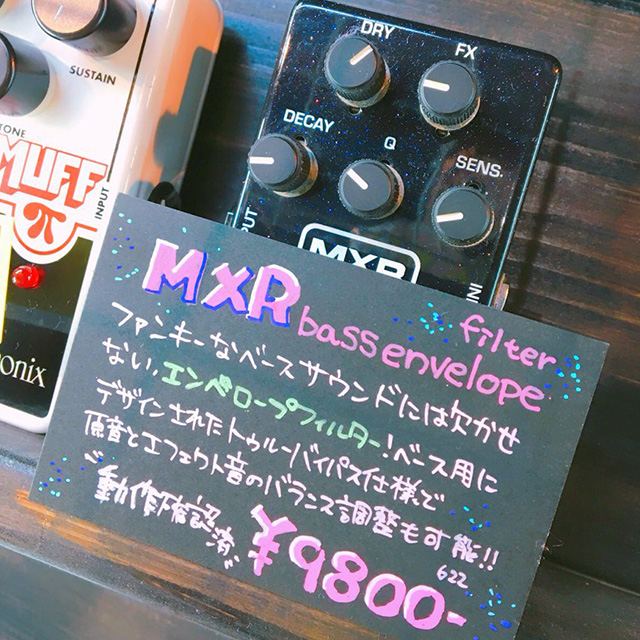 SUSTAIN
TONE
MUFF
π
INPUT
onix
DRY
FX
DECAY
Q
SENS.
MXR
MXR bass envelope filter
ファンキーなベースサウンドには欠かせ
ない、エンベロープフィルター!ベース用に
デザインされたトゥルーバイパス仕様で
原音とエフェクト音のバランス調整も可能!!
動作確認済
¥9800-
622